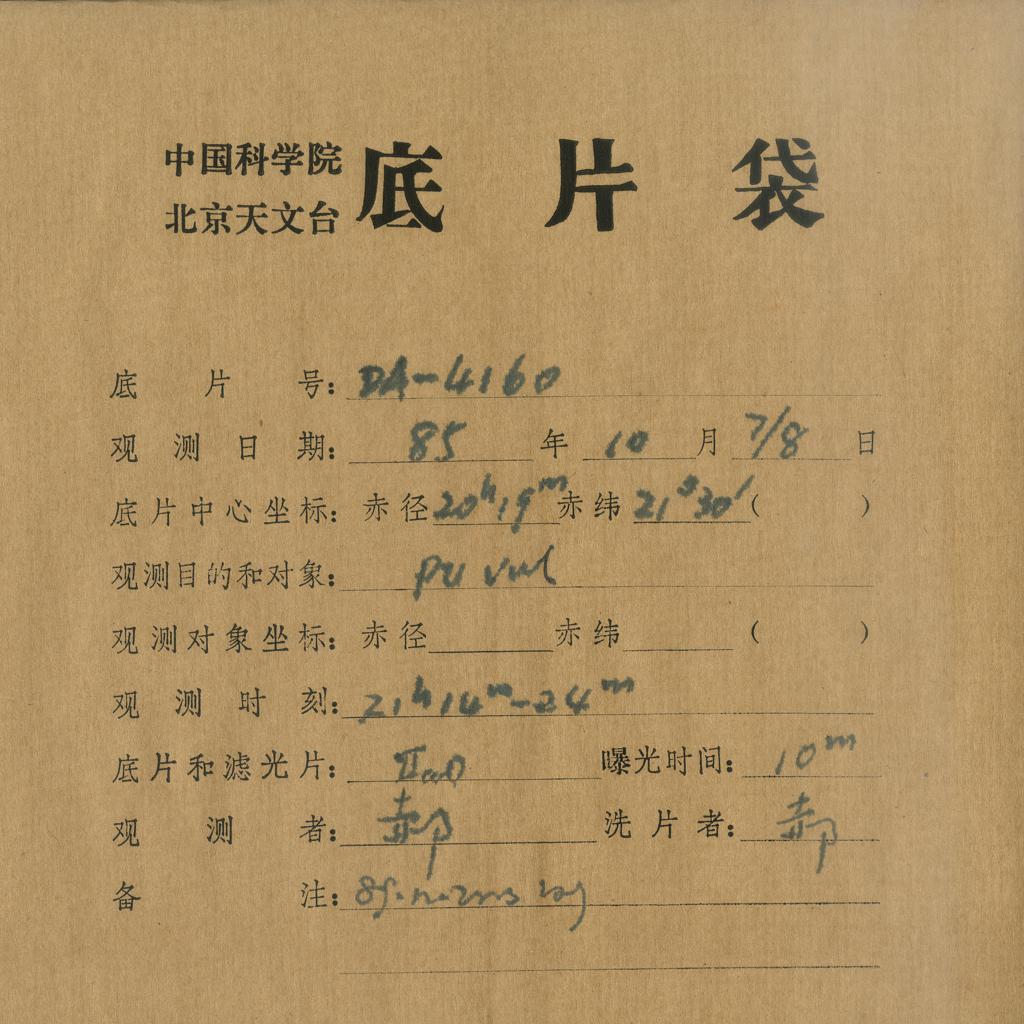 中国科学院
北京天文台
底片袋
底片号：DA-4160
观测日期：85年10月7/8日
底片中心坐标：赤径20h19m赤纬21°30′（ ）
观测目的和对象：PU Vul
观测对象坐标：赤径 赤纬 （ ）
观测时刻：21h14m-24m
底片和滤光片：IIaO 曝光时间：10m
观测者：郝 洗片者：郝
备注：